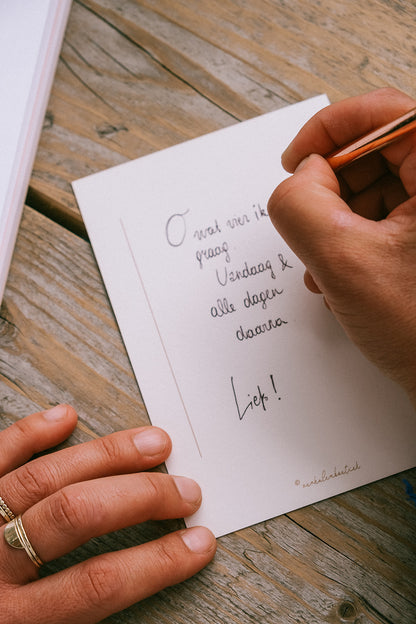 O wat vier ik
graag.
Vandaag &
alle dagen
daarna
Liefs!